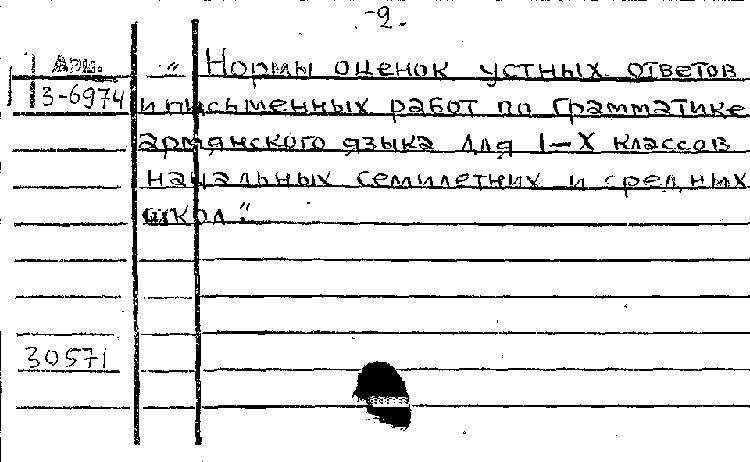 -2.
Арм.
3-6974
„Нормы оценок устных ответов
и письменных работ по грамматике
армянского языка для I-X классов
начальных семилетних и средних
школ."
30571